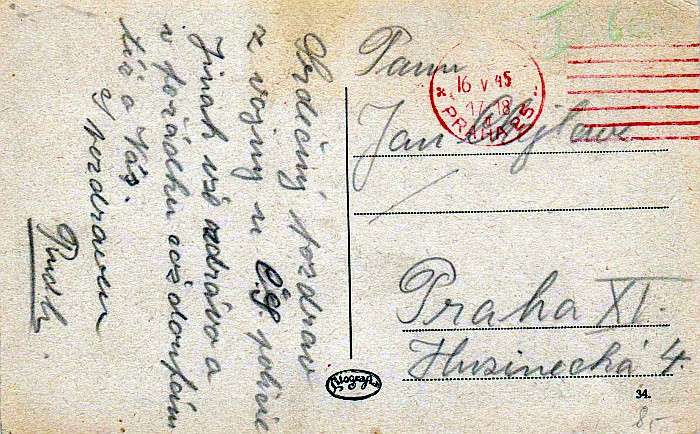 Srdečný pozdrav
z vojny u
Jinak vše zdrávo a
v pořádku což doufám
též u Vás.
S pozdravem
Panu
Jan
Praha XI.
Husinecká 4.
16 V 45
18
PRAHA 25
34.
8,-